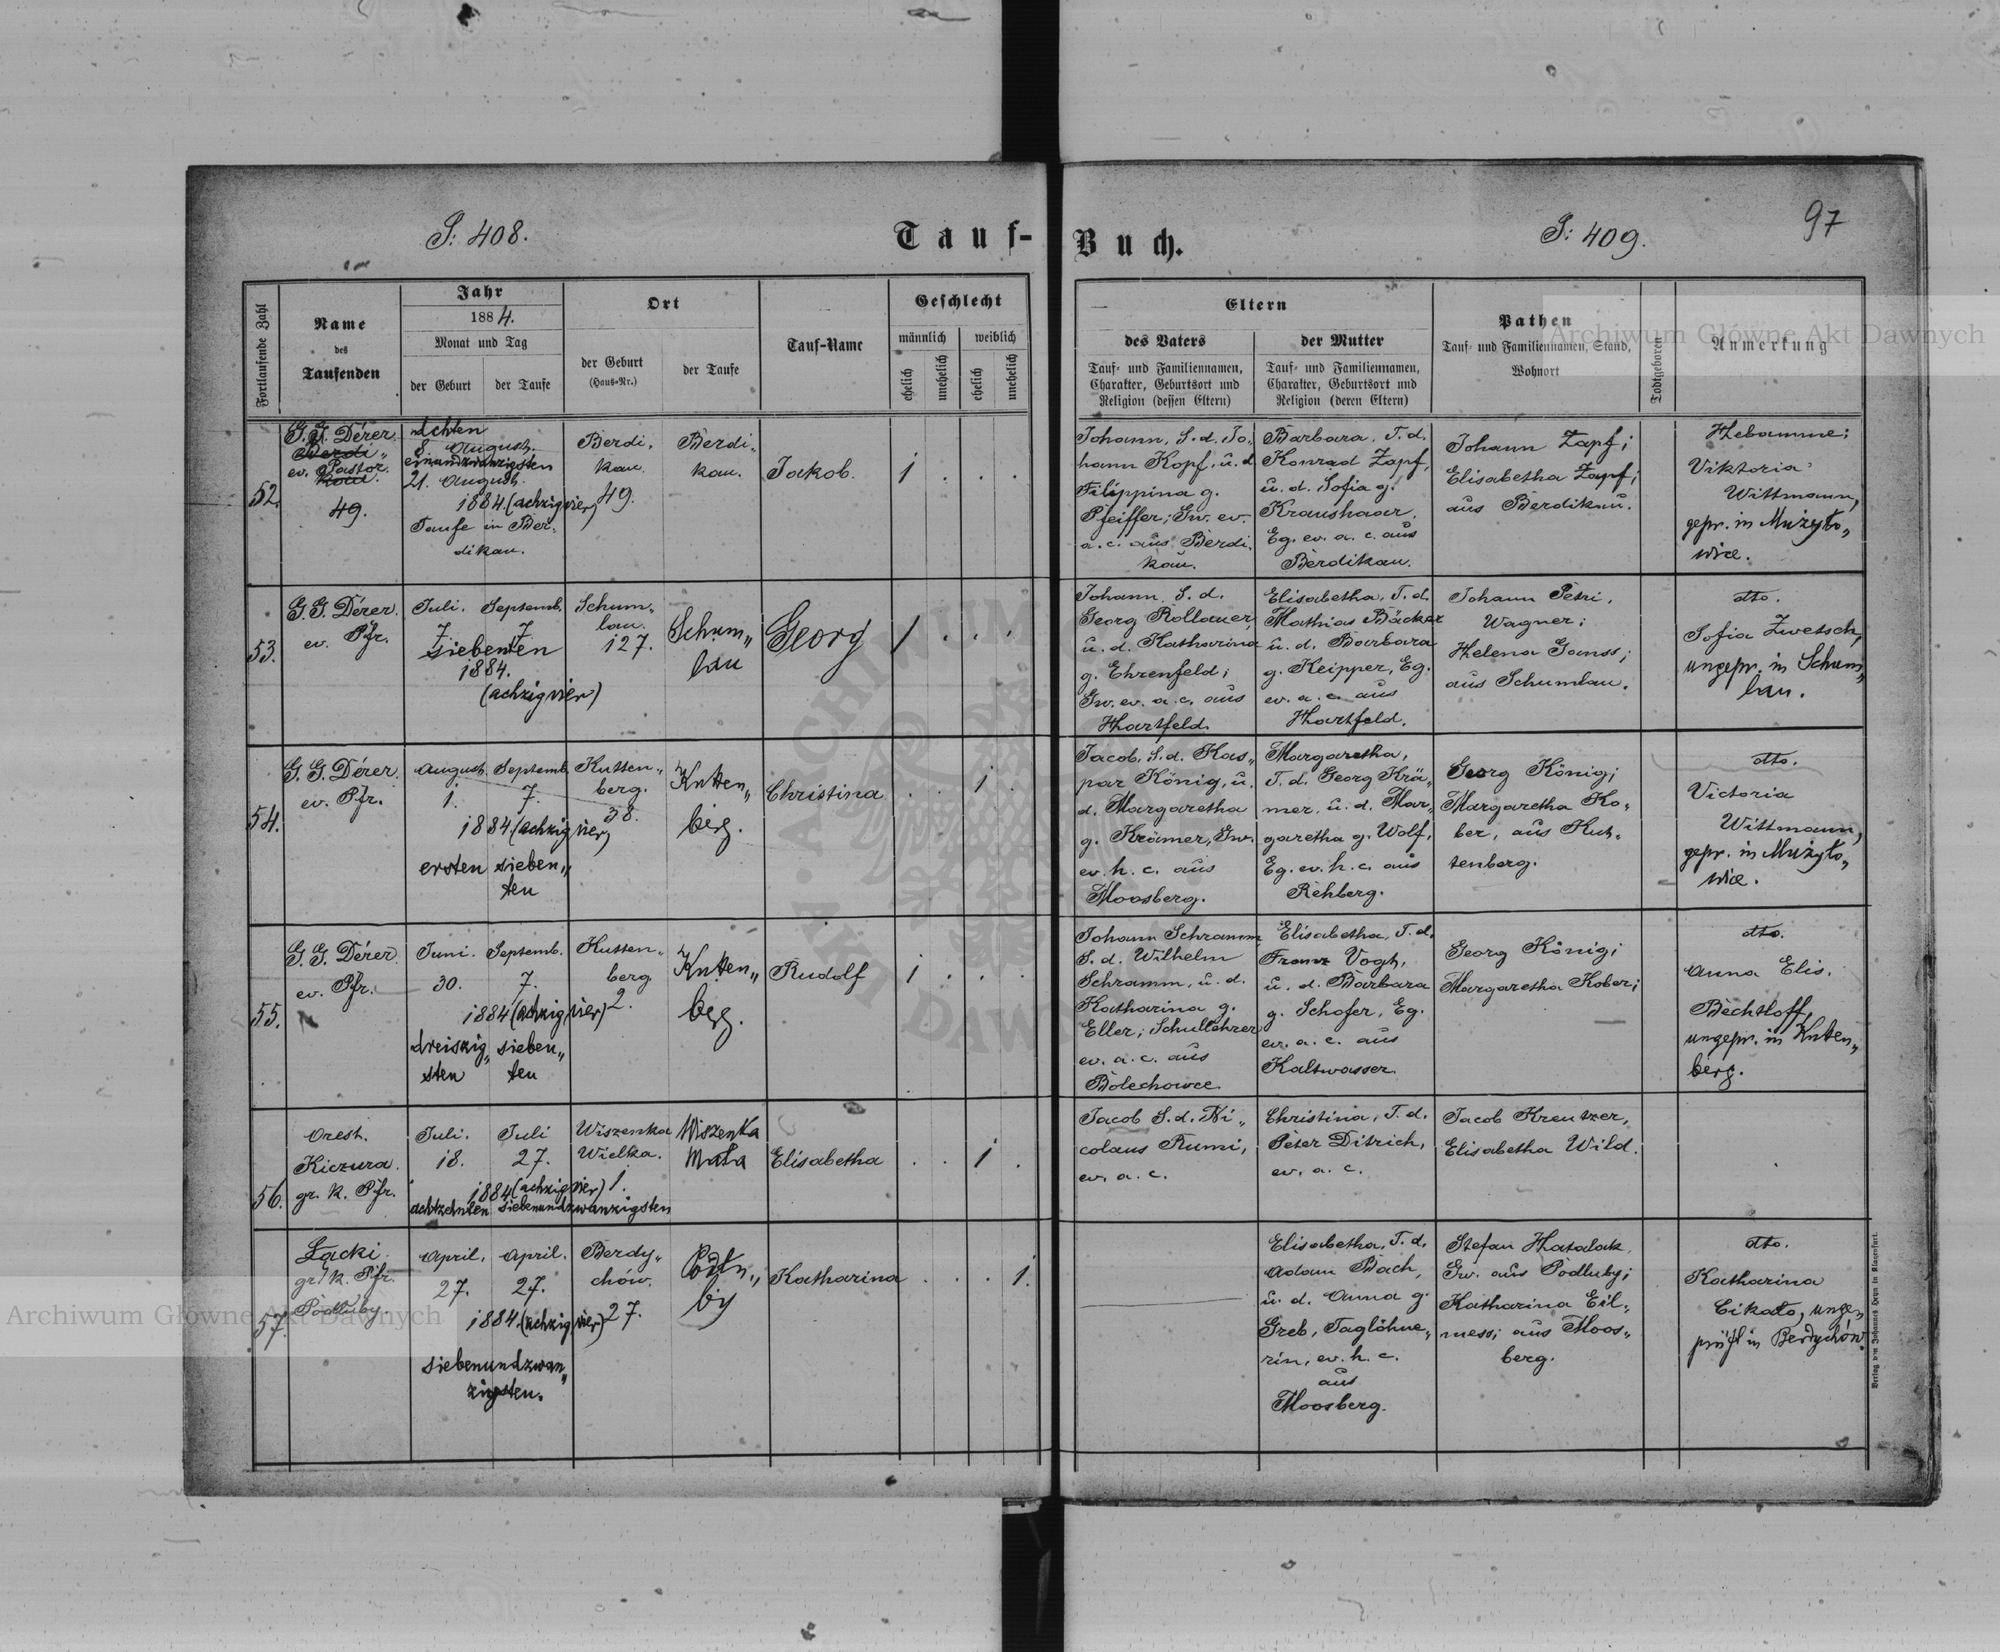 S: 408.
Tauf-
Buch.
S: 409.
97
Fortlaufende Zahl
Name
des
Taufenden
Jahr
1884.
Monat und Tag
der Geburt
der Taufe
Ort
der Geburt
(Haus-Nr.)
der Taufe
Tauf-Name
Geschlecht
männlich
weiblich
ehelich
unehelich
ehelich
unehelich
Eltern
des Vaters
Tauf- und Familiennamen,
Charakter, Geburtsort und
Religion (dessen Eltern)
der Mutter
Tauf- und Familiennamen,
Charakter, Geburtsort und
Religion (deren Eltern)
Pathen
Tauf- und Familiennamen, Stand,
Wohnort
Todtgeboren
Anmerkung
Archiwum Główne Akt Dawnych
52.
G. G. Dérer
Berdi„
ev. Pastor.
kau.
49.
achten
8. August.
einundzwanzigsten
21. August.
1884. (achzigvier)
Taufe in Ber„
dikau.
Berdi„
kau.
49.
Berdi„
kau.
Jakob.
1
Johann, S. d. Jo„
hann Kopf, u. d.
Filippina g.
Pfeiffer; Gw. ev.
a. c. aus Berdi„
kau.
Barbara, T. d.
Konrad Zapf,
u. d. Sofia g.
Kraushaar.
Eg. ev. a. c. aus
Berdikau.
Johann Zapf;
Elisabetha Zapf;
aus Berdikau.
Hebamme:
Viktoria
Wittmann,
gepr. in Mużyło„
wice.
53.
G. G. Dérer.
ev. Pfr.
Juli. Septemb.
7. 7.
siebenten
1884.
(achzigvier)
Schum„
lau.
127.
Schum„
lau
Georg
1
Johann, S. d.
Georg Rollauer,
u. d. Katharina
g. Ehrenfeld;
Gw. ev. a. c. aus
Hartfeld.
Elisabetha, T. d.
Mathias Bäcker
u. d. Barbara
g. Keipper, Eg.
ev. a. c. aus
Hartfeld.
Johann Petri,
Wagner;
Helena Ganss;
aus Schumlau.
dto.
Sofia Zwetsch,
ungepr. in Schum„
lau.
54.
G. G. Dérer.
ev. Pfr.
August. Septemb.
1. 7.
1884. (achzigvier)
ersten sieben„
ten
Kutten„
berg.
38.
Kutten„
berg.
Christina
1
Jacob, S. d. Kas„
par König, u.
d. Margaretha
g. Krämer, Gw.
ev. h. c. aus
Moosberg.
Margaretha,
T. d. Georg Krä„
mer, u. d. Mar„
garetha g. Wolf,
Eg. ev. h. c. aus
Rehberg.
Georg König;
Margaretha Ko„
ber, aus Kut„
tenberg.
dto.
Victoria
Wittmann,
gepr. in Mużyło„
wice.
55.
G. G. Dérer.
ev. Pfr.
Juni. Septemb.
30. 7.
1884 (achzigvier)
dreiszig„ sieben„
sten ten
Kutten„
berg
2.
Kutten„
berg.
Rudolf
1
Johann Schramm
S. d. Wilhelm
Schramm, u. d.
Katharina g.
Eller; Schullehrer
ev. a. c. aus
Bolechowce.
Elisabetha, T. d.
Franz Vogt,
u. d. Barbara
g. Schofer, Eg.
ev. a. c. aus
Kaltwasser.
Georg König;
Margaretha Kober;
dto.
Anna Elis.
Bechtloff,
ungepr. in Kutten„
berg.
56.
Orest.
Kiczura.
gr. k. Pfr.
Juli. Juli
18. 27.
1884 (achzigvier)
achtzehnten siebenundzwanzigsten
Wiszenka
Wielka.
1.
Wiszenka
Mała
Elisabetha
1
Jacob S. d. Ni„
colaus Rumi,
ev. a. c.
Christina, T. d.
Peter Ditrich,
ev. a. c.
Jacob Kreutzer,
Elisabetha Wild.
57.
Łącki.
gr. k. Pfr.
Podłuby.
April. April.
27. 27.
1884. (achzigvier)
siebenundzwan„
zigsten.
Berdy„
chów.
27.
Podłu„
by
Katharina
1.
Elisabetha, T. d.
Adam Bach,
u. d. Anna g.
Greb, Taglöhne„
rin, ev. h. c.
aus
Moosberg.
Stefan Hatalak,
Gw. aus Podluby;
Katharina Eil„
mess; aus Moos„
berg.
dto.
Katharina
Cikało, unge„
prüft in Berdychów.
Verlag von Johannes Heyn in Klagenfurt.
Archiwum Główne Akt Dawnych
ARCHIWUM
AKT DAW